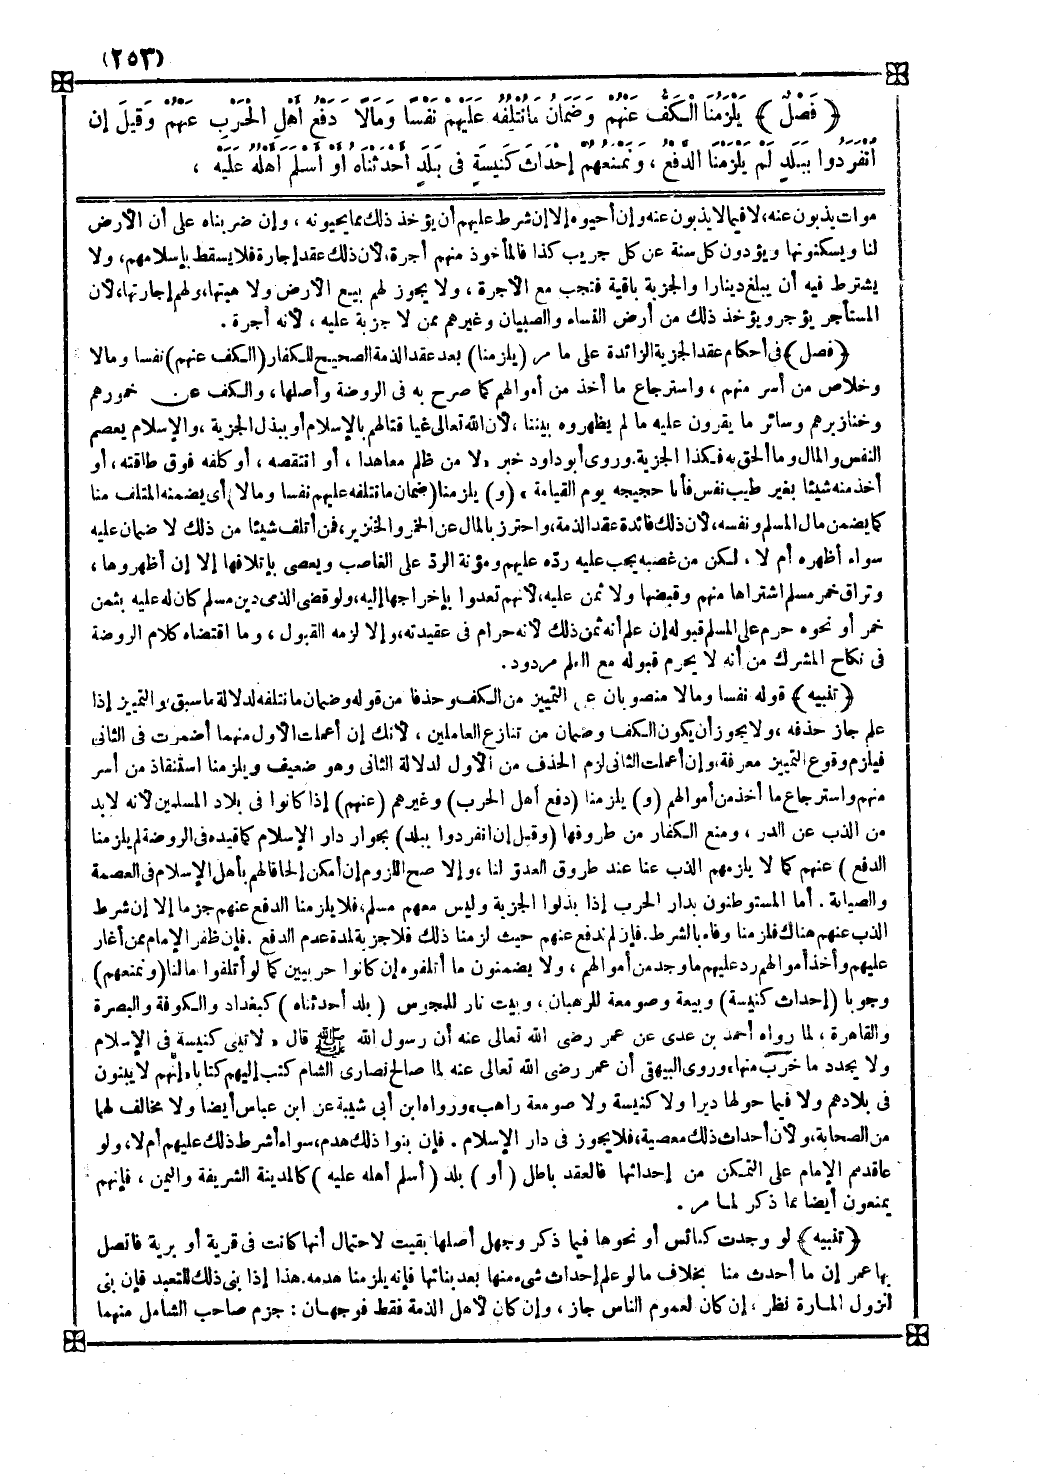 (٢٥٣)
﴿ فَصْلٌ ﴾ يَلْزَمُنَا الْكَفُّ عَنْهُمْ وَضَمَانُ مَا نُتْلِفُهُ عَلَيْهِمْ نَفْسًا وَمَالًا وَدَفْعُ أَهْلِ الْحَرْبِ عَنْهُمْ وَقِيلَ إن
انْفَرَدُوا بِبَلَدٍ لَمْ يَلْزَمْنَا الدَّفْعُ ، وَنَمْنَعُهُمْ إحْدَاثَ كَنِيسَةٍ فى بَلَدٍ أَحْدَثْنَاهُ أَوْ أَسْلَمَ أَهْلُهُ عَلَيْهِ ،
موات يذبون عنه، لا فيما لا يذبون عنه وإن أحيوه إلا إن شرط عليهم أن يؤخذ ذلك مما يحيونه ، وإن ضربناه على أن الأرض
لنا ويسكنونها ويؤدون كل سنة عن كل جريب كذا فالمأخوذ منهم أجرة، لأن ذلك عقد إجارة فلا يسقط بإسلامهم، ولا
يشترط فيه أن يبلغ دينارا والجزية باقية فتجب مع الأجرة ، ولا يجوز لهم بيع الأرض ولا هبتها، ولهم إجارتها، لأن
المستأجر يؤجر ويؤخذ ذلك من أرض النساء والصبيان وغيرهم ممن لا جزية عليه ، لأنه أجرة .
﴿ فصل ﴾ فى أحكام عقد الجزية الزائدة على ما مر (يلزمنا) بعد عقد الذمة الصحيح للكفار (الكف عنهم) نفسا ومالا
وخلاص من أسر منهم ، واسترجاع ما أخذ من أموالهم كما صرح به فى الروضة وأصلها ، والكف عن خمورهم
وخنازيرهم وسائر ما يقرون عليه ما لم يظهروه بيننا ، لأن الله تعالى غيا قتالهم بالإسلام أو ببذل الجزية ، والإسلام يعصم
النفس والمال وما ألحق به فكذا الجزية. وروى أبو داود خبر « ألا من ظلم معاهدا ، أو انتقصه ، أو كلفه فوق طاقته ، أو
أخذ منه شيئا بغير طيب نفس فأنا حجيجه يوم القيامة » (و) يلزمنا (ضمان ما نتلفه عليهم نفسا ومالا) أى يضمنه المتلف منا
كما يضمن مال المسلم ونفسه، لأن ذلك فائدة عقد الذمة، واحترز بالمال عن الخمر والخنزير، فمن أتلف شيئا من ذلك لا ضمان عليه
سواء أظهره أم لا ، لكن من غصبه يجب عليه رده عليهم ومؤنة الرد على الغاصب ويعصى بإتلافها إلا إن أظهروها ،
وتراق خمر مسلم اشتراها منهم وقبضها ولا ثمن عليه، لأنهم تعدوا بإخراجها إليه، ولو قضى الذمى دين مسلم كان له عليه بثمن
خمر أو نحوه حرم على المسلم قبوله إن علم أنه ثمن ذلك لأنه حرام فى عقيدته، وإلا لزمه القبول ، وما اقتضاه كلام الروضة
فى نكاح المشرك من أنه لا يحرم قبوله مع العلم مردود .
﴿ تنبيه ﴾ قوله نفسا ومالا منصوبان على التمييز من الكف وحذفا من قوله وضمان ما نتلفه لدلالة ما سبق، والتمييز إذا
علم جاز حذفه ، ولا يجوز أن يكون الكف وضمان من تنازع العاملين ، لأنك إن أعملت الأول منهما أضمرت فى الثانى
فيلزم وقوع التمييز معرفة، وإن أعملت الثانى لزم الحذف من الأول لدلالة الثانى وهو ضعيف ويلزمنا استنقاذ من أسر
منهم واسترجاع ما أخذ من أموالهم (و) يلزمنا (دفع أهل الحرب) وغيرهم (عنهم) إذا كانوا فى بلاد المسلمين لأنه لابد
من الذب عن الدار ، ومنع الكفار من طروقها (وقيل إن انفردوا ببلد) بجوار دار الإسلام كما قيده فى الروضة لم يلزمنا
الدفع) عنهم كما لا يلزمهم الذب عنا عند طروق العدو لنا ، وإلا صح اللزوم إن أمكن إلحاقا لهم بأهل الإسلام فى العصمة
والصيانة . أما المستوطنون بدار الحرب إذا بذلوا الجزية وليس معهم مسلم، فلا يلزمنا الدفع عنهم جزما إلا إن شرط
الذب عنهم هناك فلزمنا وفاء بالشرط. فإن لم ندفع عنهم حيث لزمنا ذلك فلا جزية لمدة عدم الدفع . فإن ظفر الإمام ممن أغار
عليهم وأخذ أموالهم رد عليهم ما وجد من أموالهم ، ولا يضمنون ما أتلفوه إن كانوا حربيين كما لو أتلفوا مالنا (ونمنعهم)
وجوبا (إحداث كنيسة) وبيعة وصومعة للرهبان ، وبيت نار للمجوس ( بلد أحدثناه ) كبغداد والكوفة والبصرة
والقاهرة ، لما رواه أحمد بن عدى عن عمر رضى الله تعالى عنه أن رسول الله ﷺ قال « لا تبنى كنيسة فى الإسلام
ولا يجدد ما خرب منها» وروى البيهقى أن عمر رضى الله تعالى عنه لما صالح نصارى الشام كتب إليهم كتابا «إنهم لا يبنون
فى بلادهم ولا فيما حولها ديرا ولا كنيسة ولا صومعة راهب» ورواه ابن أبى شيبة عن ابن عباس أيضا ولا مخالف لهما
من الصحابة، ولأن أحداث ذلك معصية، فلا يجوز فى دار الإسلام . فإن بنوا ذلك هدم، سواء أشرط ذلك عليهم أم لا، ولو
عاقدهم الإمام على التمكن من إحداثها فالعقد باطل ( أو ) بلد ( أسلم أهله عليه ) كالمدينة الشريفة واليمن ، فإنهم
يمنعون أيضا مما ذكر لما مر .
﴿ تنبيه ﴾ لو وجدت كنائس أو نحوها فيما ذكر وجهل أصلها بقيت لاحتمال أنها كانت فى قرية أو برية فاتصل
بها عمر إن ما أحدث منا بخلاف ما لو علم إحداث شىء منها بعد بنائها فإنه يلزمنا هدمه. هذا إذا بنى ذلك للتعبد فإن بنى
لنزول المارة نظر ، إن كان لعموم الناس جاز ، وإن كان لأهل الذمة فقط فوجهان : جزم صاحب الشامل منهما